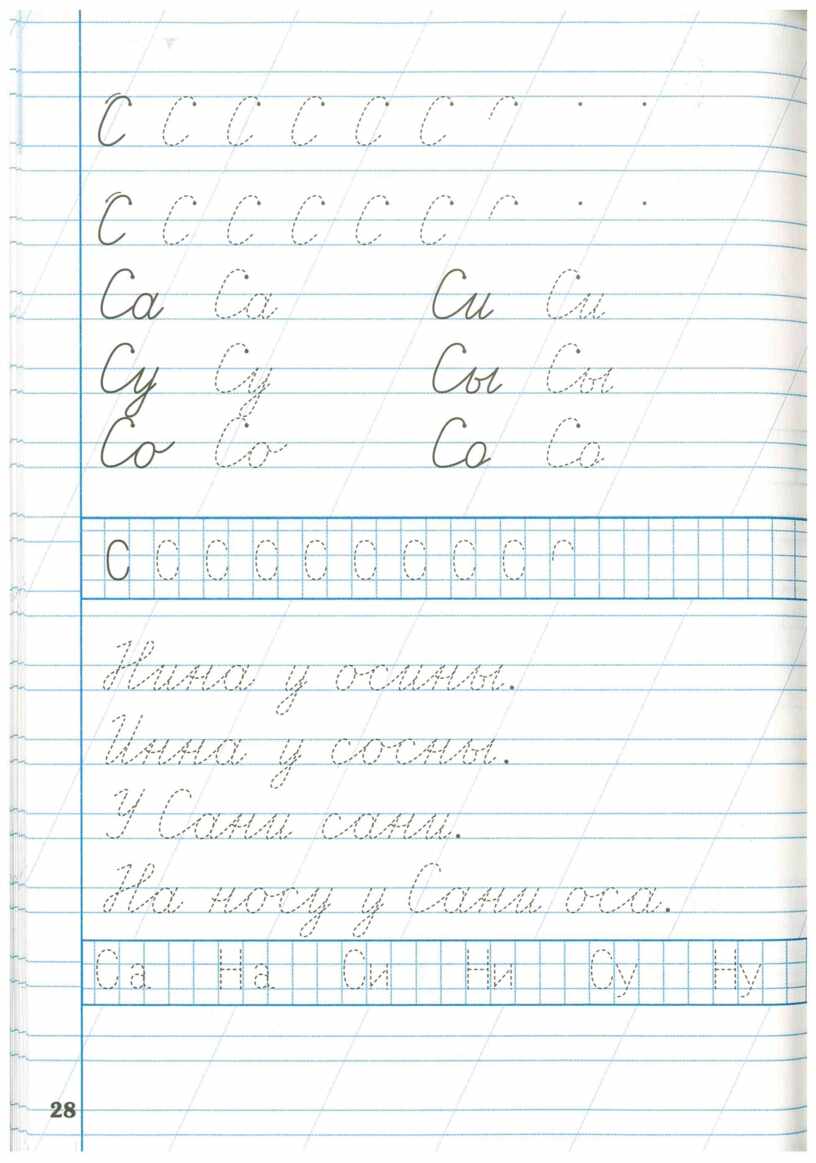 С С С С С С С
С С С С С С С
Са Са Си Си
Су Су Сы Сы
Со Со Со Со
С С С С С С С С С С
Нина у осины.
Инна у сосны.
У Сани сани.
На носу у Сани оса.
Са На Си Ни Су Ну
28